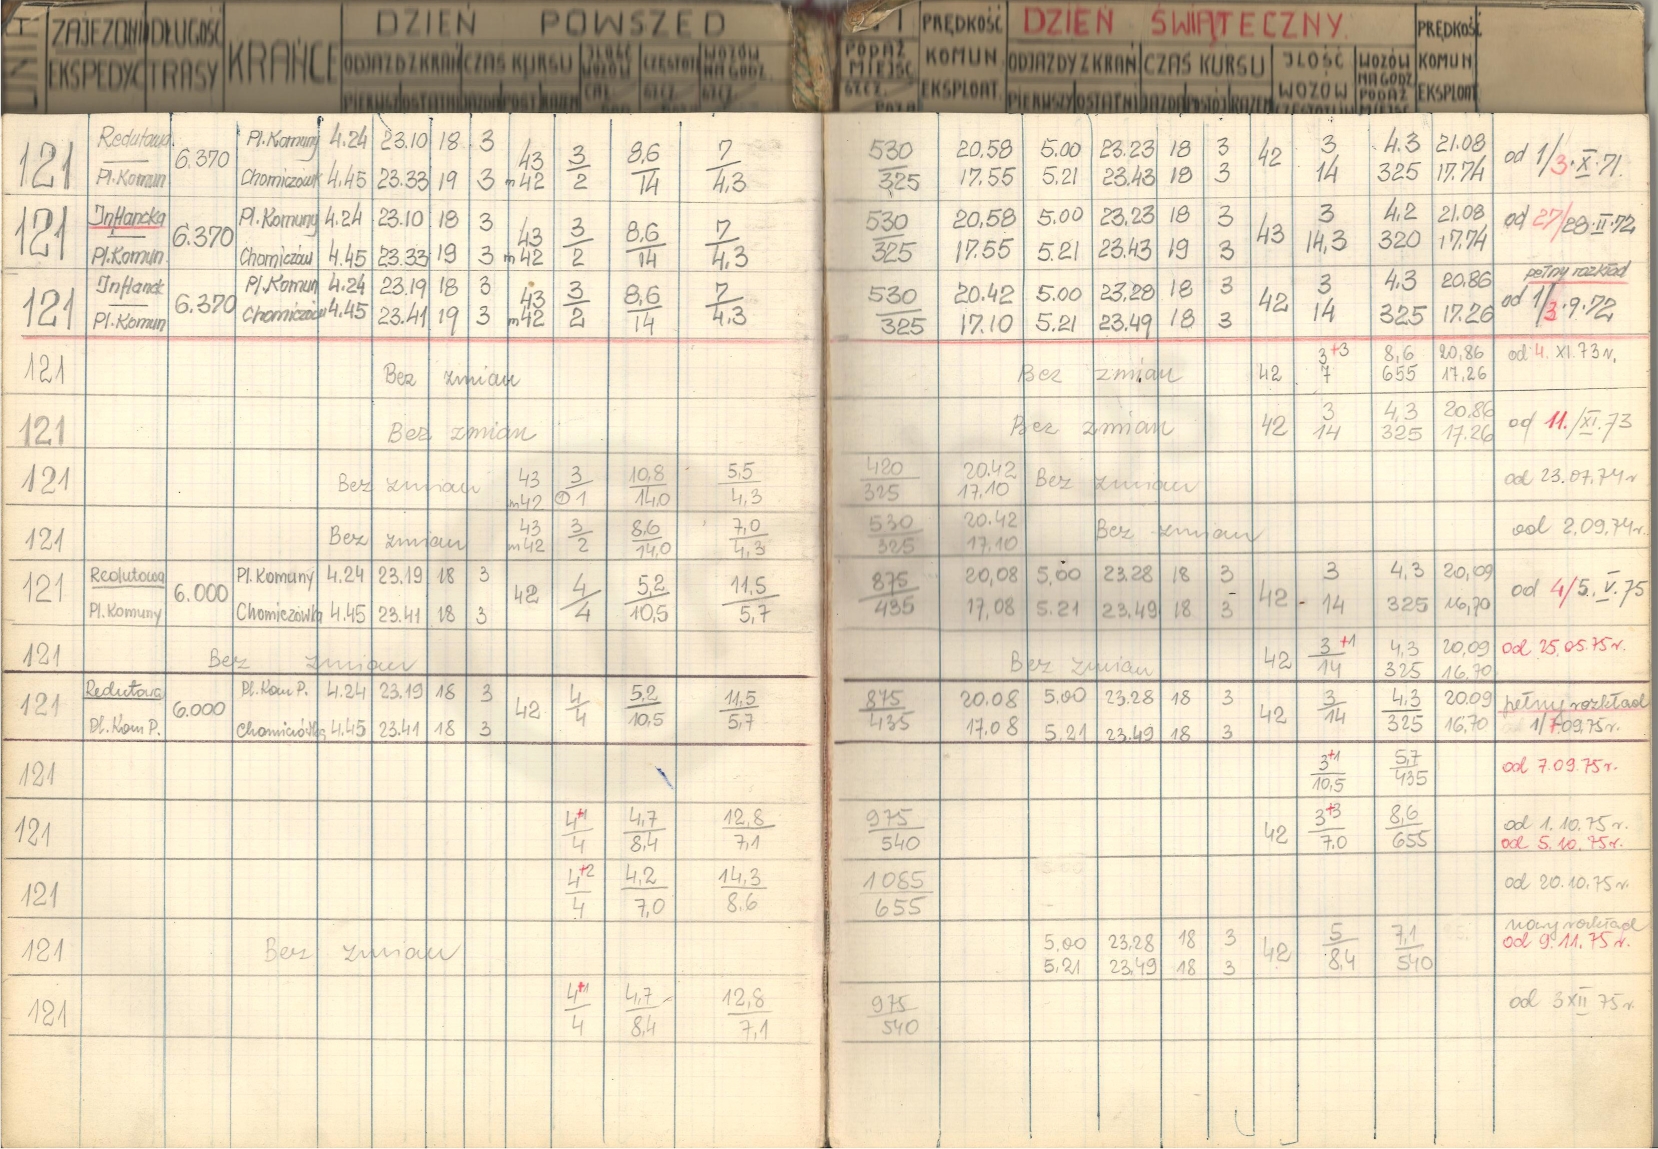 ZAJEZDNI DŁUGOŚĆ DZIEŃ POWSZED PRĘDKOŚĆ DZIEŃ ŚWIĄTECZNY. PRĘDKOŚĆ
EKSPEDYC TRASY KRAŃCE ODJAZD Z KRAŃ CZAS KURSU ILOŚĆ WOZÓW CZĘSTOTL WOZÓW NA GODZ. PODAŻ MIEJSC KOMUN ODJAZDY Z KRAŃ CZAS KURSU ILOŚĆ WOZÓW WOZÓW NA GODZ KOMUN
PIERWSZY OSTATNI JAZDA POST RAZEM SZCZ. SZCZ. SZCZ. EKSPLOAT. PIERWSZY OSTATNI JAZDA POSTÓJ RAZEM PODAŻ MIEJSC EKSPLOAT
121 Redutowa 6.370 Pl.Komuny 4.24 23.10 18 3 43 3 8,6 7 530 20.58 5.00 23.23 18 3 42 3 4.3 21.08 od 1/3.X.71.
Pl.Komun Chomiczówk 4.45 23.33 19 3 m42 2 14 4,3 325 17.55 5.21 23.43 18 3 14 325 17.74
121 Inflancka 6.370 Pl.Komuny 4.24 23.10 18 3 43 3 8,6 7 530 20,58 5.00 23.23 18 3 43 3 4.2 21.08 od 27/28.II.72
Pl.Komun Chomiczów 4.45 23.33 19 3 m42 2 14 4,3 325 17.55 5.21 23.43 19 3 14,3 320 17.74
121 Inflanck 6.370 Pl.Komun 4.24 23.19 18 3 43 3 8,6 7 530 20.42 5.00 23,28 18 3 42 3 4,3 20,86 pełny rozkład
Pl.Komun Chomiczów 4.45 23.41 19 3 m42 2 14 4.3 325 17.10 5.21 23.49 18 3 14 325 17.26 od 1/3.9.72
121 Bez zmian Bez zmian 42 3+3 8,6 20,86 od 4. XI.73 r.
7 655 17,26
121 Bez zmian Bez zmian 42 3 4,3 20,86 od 11./XI.73
14 325 17.26
121 Bez zmian 43 3 10,8 5,5 420 20.42 Bez zmian od 23.07.74r
m42 1 14,0 4,3 325 17,10
121 Bez zmian 43 3 8,6 7,0 530 20.42 Bez zmian od 2.09.74r.
m42 2 14,0 4,3 325 17,10
121 Redutowa 6.000 Pl.Komuny 4.24 23.19 18 3 42 4 5,2 11,5 875 20,08 5,00 23.28 18 3 42 3 4,3 20,09 od 4/5.V.75
Pl.Komuny Chomiczówka 4.45 23.41 18 3 4 10,5 5,7 435 17,08 5.21 23.49 18 3 14 325 16,70
121 Bez zmian Bez zmian 42 3+1 4,3 20,09 od 25.05.75r.
14 325 16.70
121 Redutowa 6.000 Pl.Kom P. 4.24 23.19 18 3 42 4 5,2 11,5 875 20.08 5,00 23.28 18 3 42 3 4,3 20.09 pełny rozkład
Pl.Kom P. Chomiczówka 4.45 23.41 18 3 4 10,5 5,7 435 17.08 5.21 23.49 18 3 14 325 16,70 1/7.09.75r.
121 3+1 5,7 od 7.09.75r.
10,5 435
121 4+1 4,7 12,8 975 42 3+3 8,6 od 1.10.75r.
4 8,4 7,1 540 7.0 655 od 5.10.75r.
121 4+2 4,2 14,3 1085 od 20.10.75r.
4 7,0 8.6 655
121 Bez zmian 5,00 23,28 18 3 42 5 7,1 nowy rozkład
5,21 23,49 18 3 8,4 540 od 9.11.75r.
121 4+1 4,7 12,8 975 od 3 XII 75r.
4 8,4 7,1 540